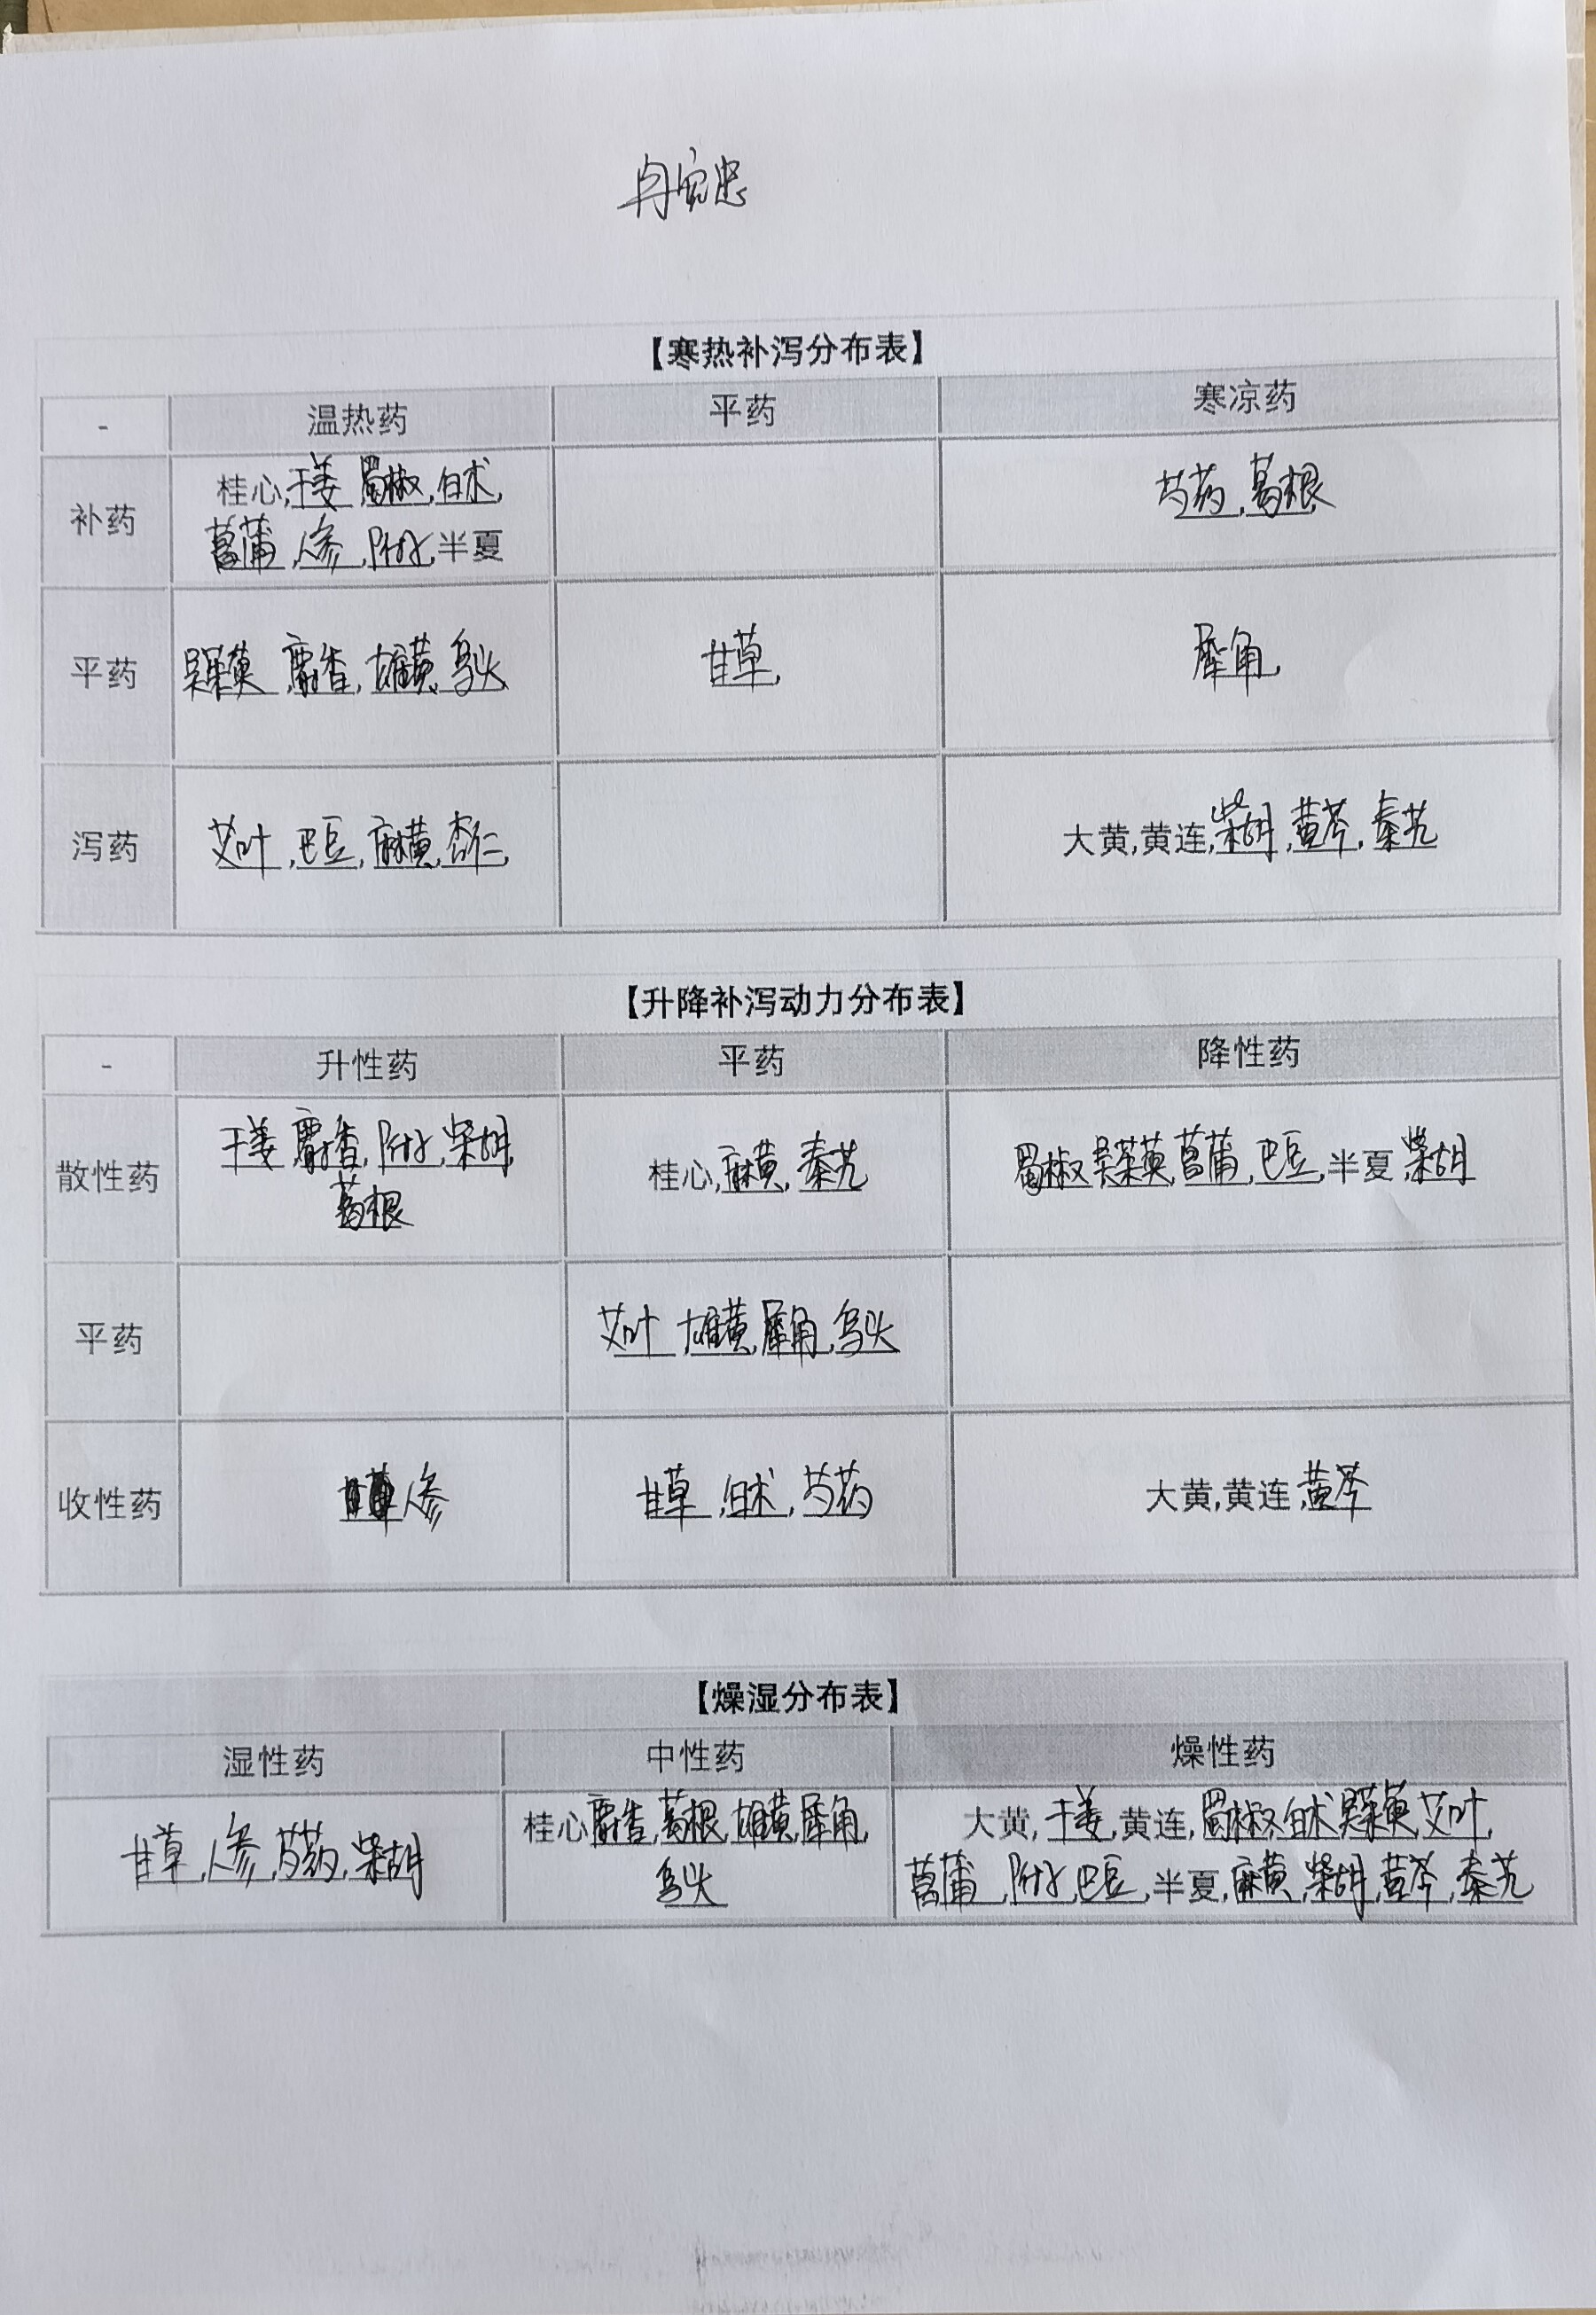 【寒热补泻分布表】
- 温热药 平药 寒凉药
补药 桂心,干姜,蜀椒,白术, 芍药,葛根
菖蒲,人参,附子,半夏
平药 吴茱萸,麝香,雄黄,乌头 甘草, 犀角,
泻药 艾叶,巴豆,麻黄,杏仁, 大黄,黄连,柴胡,黄芩,秦艽
【升降补泻动力分布表】
- 升性药 平药 降性药
散性药 干姜,麝香,附子,柴胡, 桂心,麻黄,秦艽 蜀椒,吴茱萸,菖蒲,巴豆,半夏,柴胡
葛根
平药 艾叶,雄黄,犀角,乌头
收性药 人参 甘草,白术,芍药 大黄,黄连,黄芩
【燥湿分布表】
湿性药 中性药 燥性药
甘草,人参,芍药,柴胡 桂心,麝香,葛根,雄黄,犀角, 大黄,干姜,黄连,蜀椒,白术,吴茱萸,艾叶,
乌头 菖蒲,附子,巴豆,半夏,麻黄,柴胡,黄芩,秦艽